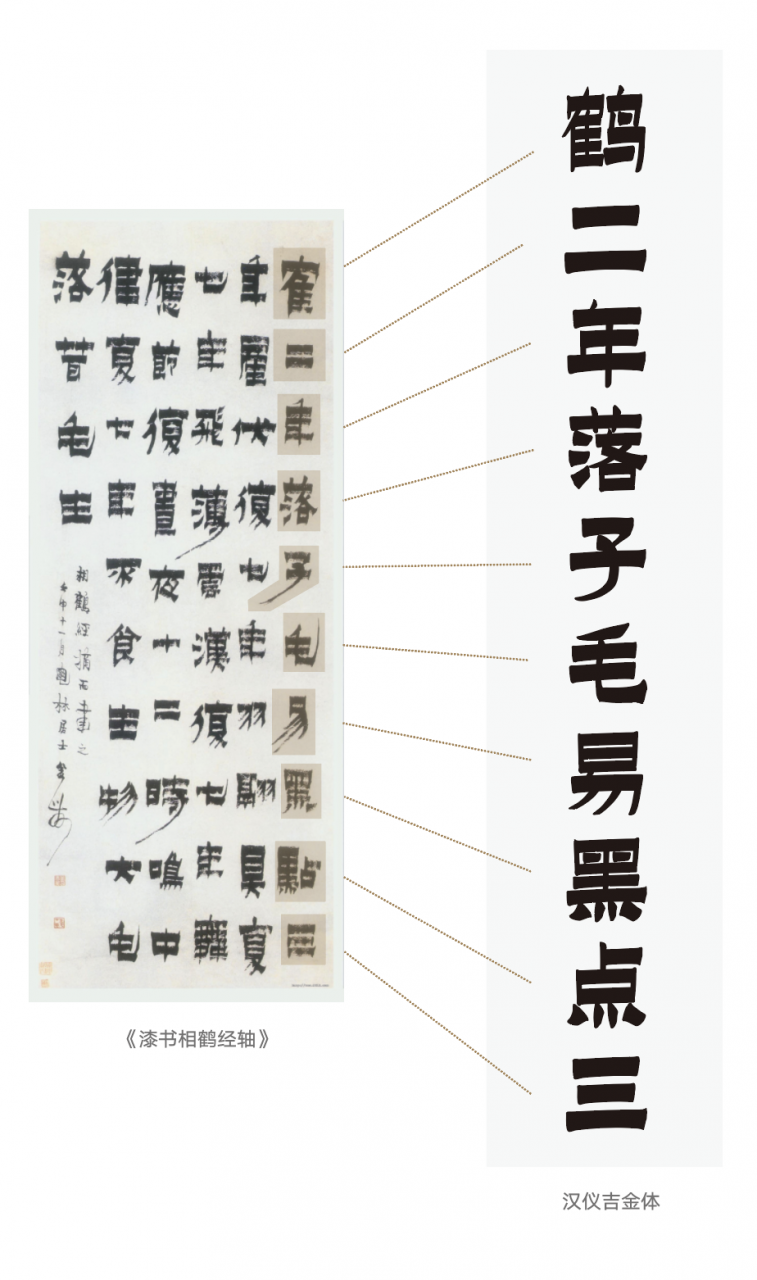 寉二年落子毛易黑點三
年產伏復七年羽翮具复
七年飛薄雲漢復七年舞
應節復晝夜十二時鳴中
律复七年不食生物大毛
落茸毛生
相鶴經摘而書之
十一月 居士金
《漆书相鹤经轴》
鹤二年落子毛易黑点三
汉仪吉金体